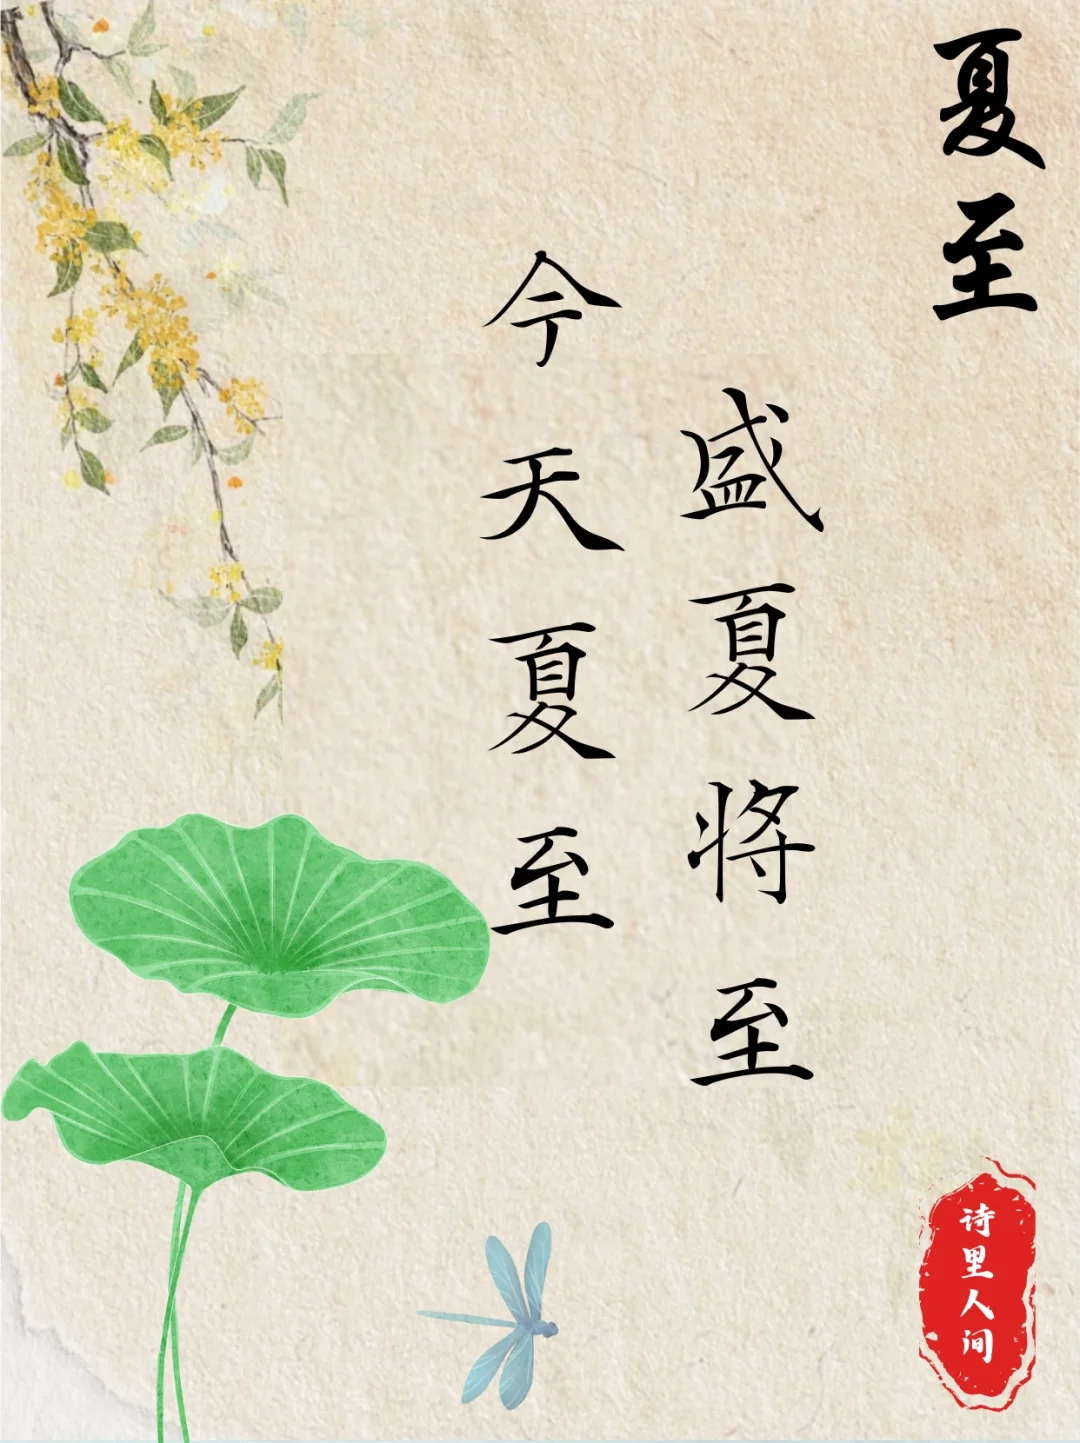 夏至
盛夏将至
今天夏至
诗里人间